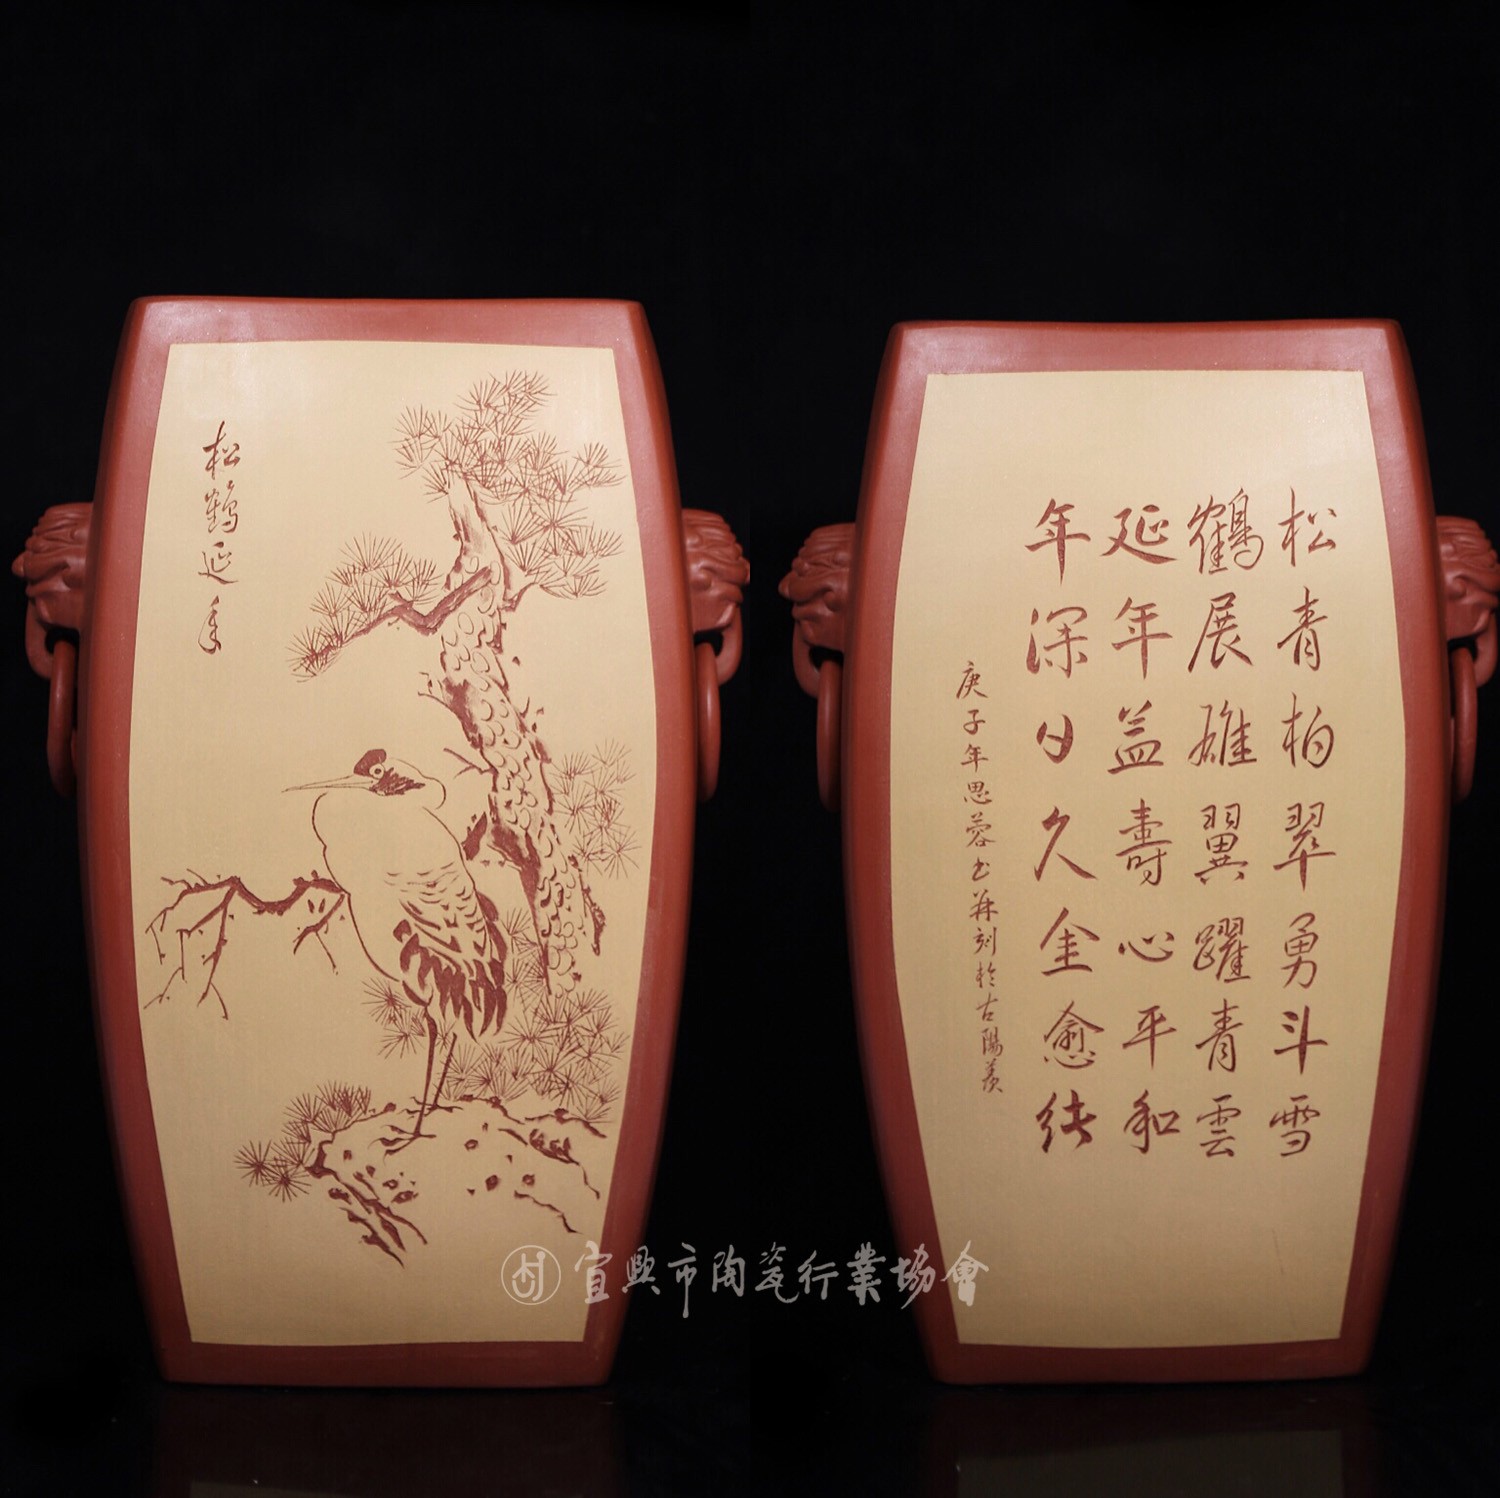 松鶴延年
松青柏翠勇斗雪
鶴展雄翼躍青雲
延年益壽心平和
年深日久金愈纯
庚子年思蓉书并刻於古陽羨
宜興市陶瓷行業協會